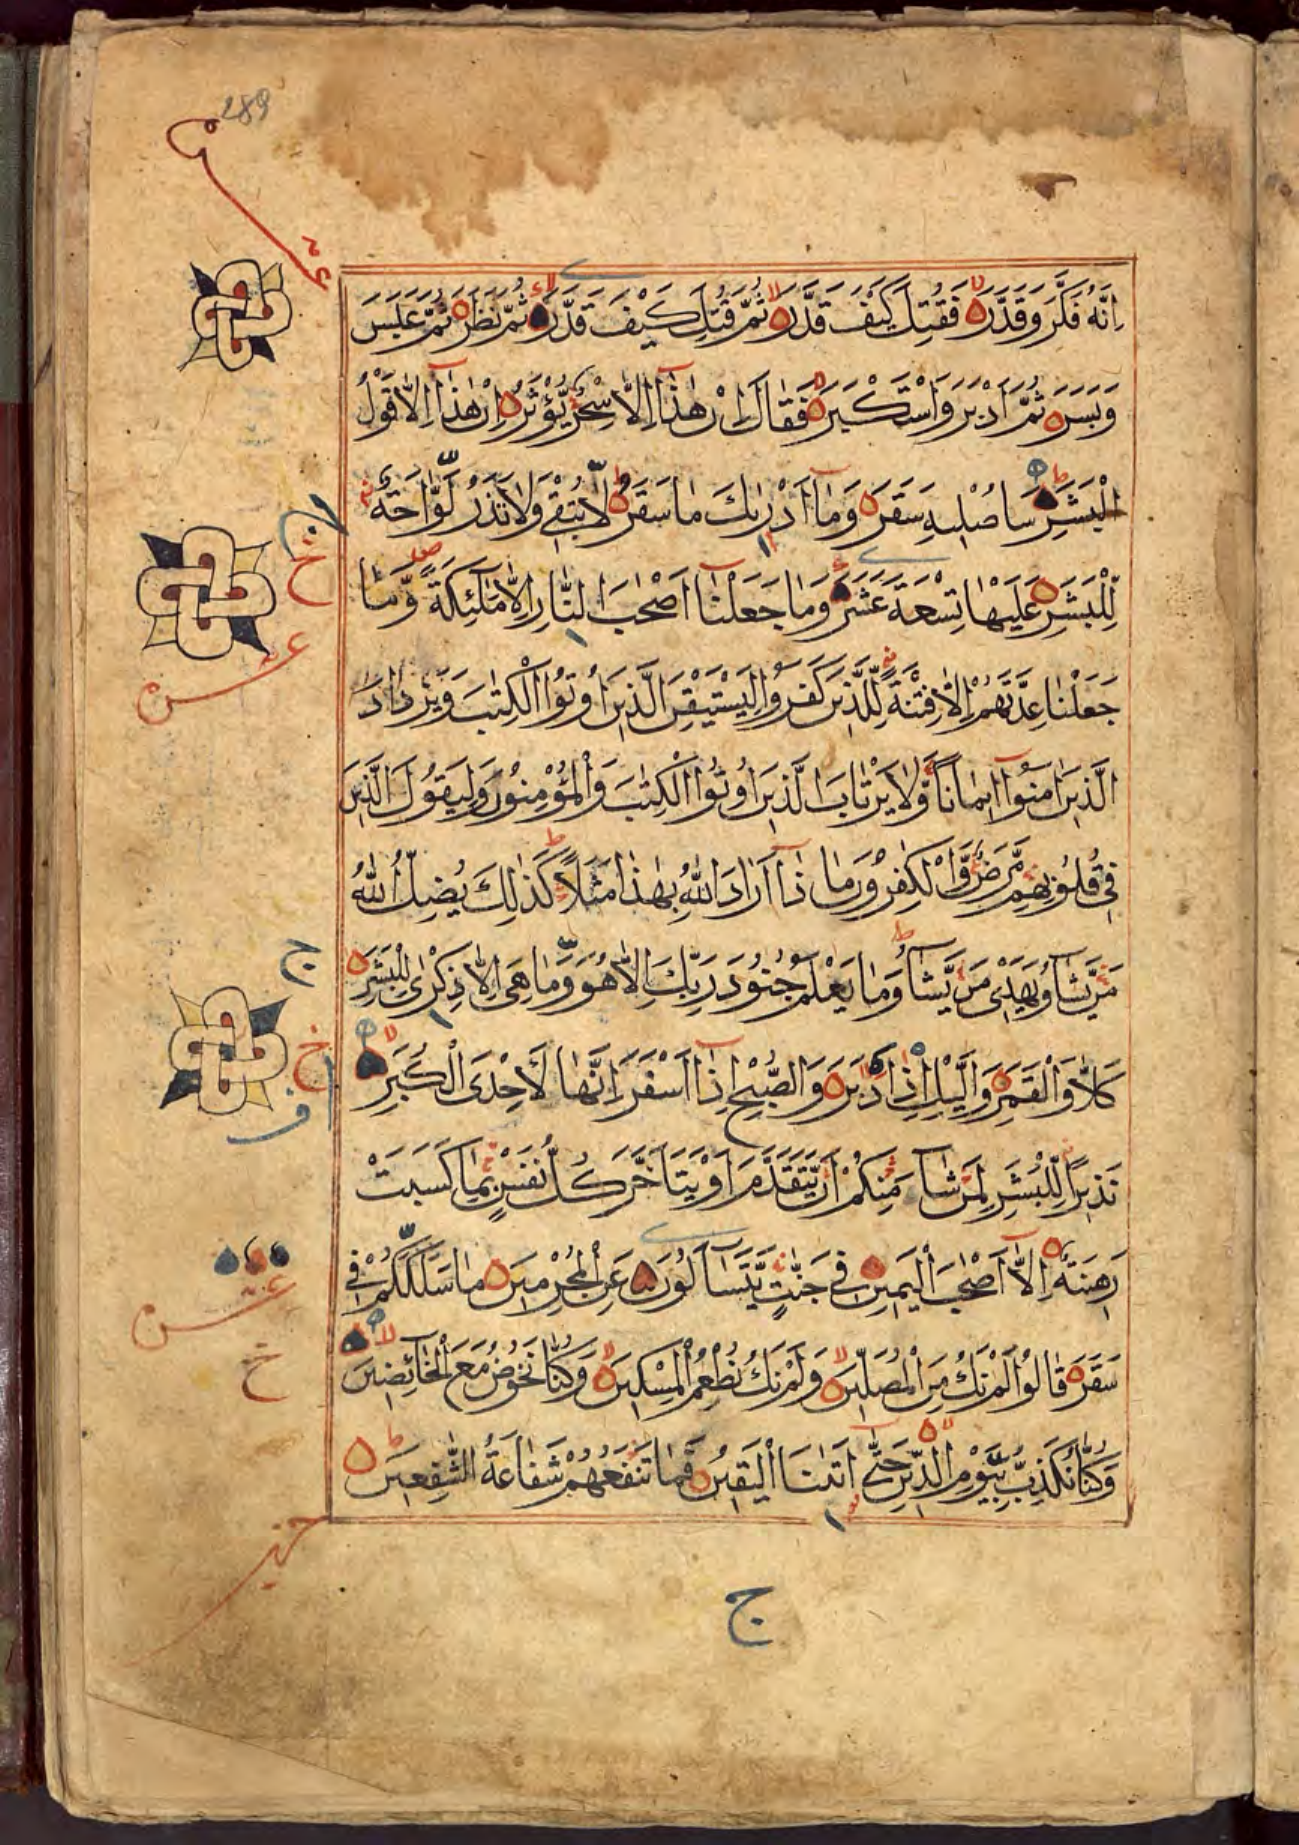 289
اِنَّهُ فَكَّرَ وَقَدَّرَ فَقُتِلَ كَيْفَ قَدَّرَ ثُمَّ قُتِلَ كَيْفَ قَدَّرَ ثُمَّ نَظَرَ ثُمَّ عَبَسَ
وَبَسَرَ ثُمَّ اَدْبَرَ وَاسْتَكْبَرَ فَقَالَ اِنْ هٰذَا اِلَّا سِحْرٌ يُّؤْثَرُ اِنْ هٰذَا اِلَّا قَوْلُ
الْبَشَرِ سَاُصْلِيهِ سَقَرَ وَمَا اَدْرٰىكَ مَا سَقَرُ لَا تُبْقِي وَلَا تَذَرُ لَوَّاحَةٌ
لِّلْبَشَرِ عَلَيْهَا تِسْعَةَ عَشَرَ وَمَا جَعَلْنَا اَصْحٰبَ النَّارِ اِلَّا مَلٰئِكَةً وَّمَا
جَعَلْنَا عِدَّتَهُمْ اِلَّا فِتْنَةً لِّلَّذِينَ كَفَرُوا لِيَسْتَيْقِنَ الَّذِينَ اُوتُوا الْكِتٰبَ وَيَزْدَادَ
الَّذِينَ اٰمَنُوا اِيمَانًا وَّلَا يَرْتَابَ الَّذِينَ اُوتُوا الْكِتٰبَ وَالْمُؤْمِنُونَ وَلِيَقُولَ الَّذِينَ
فِي قُلُوبِهِمْ مَّرَضٌ وَّالْكٰفِرُونَ مَاذَا اَرَادَ اللّٰهُ بِهٰذَا مَثَلًا كَذٰلِكَ يُضِلُّ اللّٰهُ
مَنْ يَّشَاءُ وَيَهْدِي مَنْ يَّشَاءُ وَمَا يَعْلَمُ جُنُودَ رَبِّكَ اِلَّا هُوَ وَمَا هِيَ اِلَّا ذِكْرٰى لِلْبَشَرِ
كَلَّا وَالْقَمَرِ وَالَّيْلِ اِذْ اَدْبَرَ وَالصُّبْحِ اِذَا اَسْفَرَ اِنَّهَا لَاِحْدَى الْكُبَرِ
نَذِيرًا لِّلْبَشَرِ لِمَنْ شَاءَ مِنْكُمْ اَنْ يَّتَقَدَّمَ اَوْ يَتَاَخَّرَ كُلُّ نَفْسٍ بِمَا كَسَبَتْ
رَهِينَةٌ اِلَّا اَصْحٰبَ الْيَمِينِ فِي جَنّٰتٍ يَّتَسَاءَلُونَ عَنِ الْمُجْرِمِينَ مَا سَلَكَكُمْ فِي
سَقَرَ قَالُوا لَمْ نَكُ مِنَ الْمُصَلِّينَ وَلَمْ نَكُ نُطْعِمُ الْمِسْكِينَ وَكُنَّا نَخُوضُ مَعَ الْخَائِضِينَ
وَكُنَّا نُكَذِّبُ بِيَوْمِ الدِّينِ حَتّٰى اَتٰىنَا الْيَقِينُ فَمَا تَنْفَعُهُمْ شَفَاعَةُ الشّٰفِعِينَ
ج